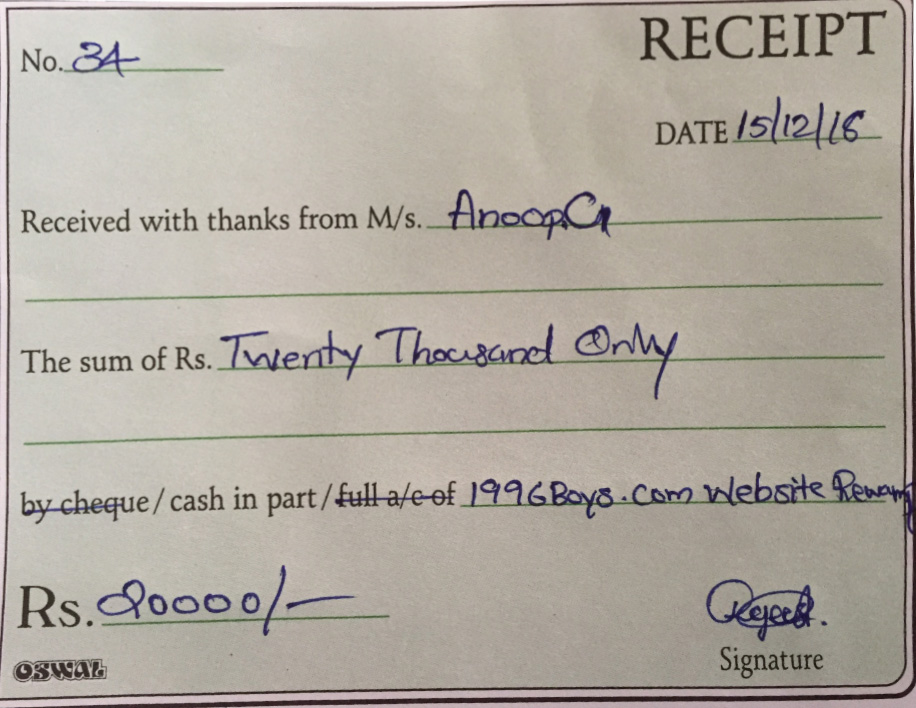 RECEIPT
No. 34
DATE 15/12/18
Received with thanks from M/s. Anoop.G
The sum of Rs. Twenty Thousand Only
by cheque / cash in part / full a/c of 1996Boys.com Website Rewamp
Rs. 20000/-
Signature
OSWAL